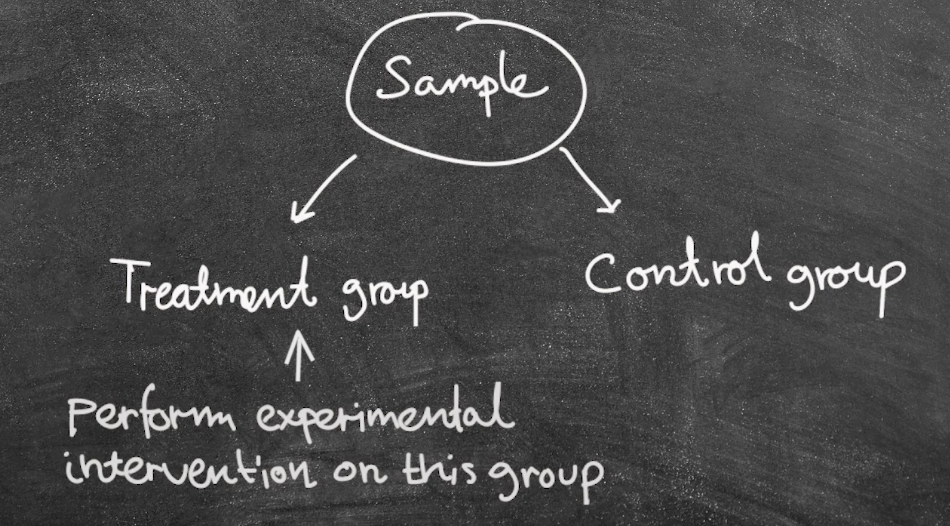 Sample
Treatment group
Control group
Perform experimental
intervention on this group